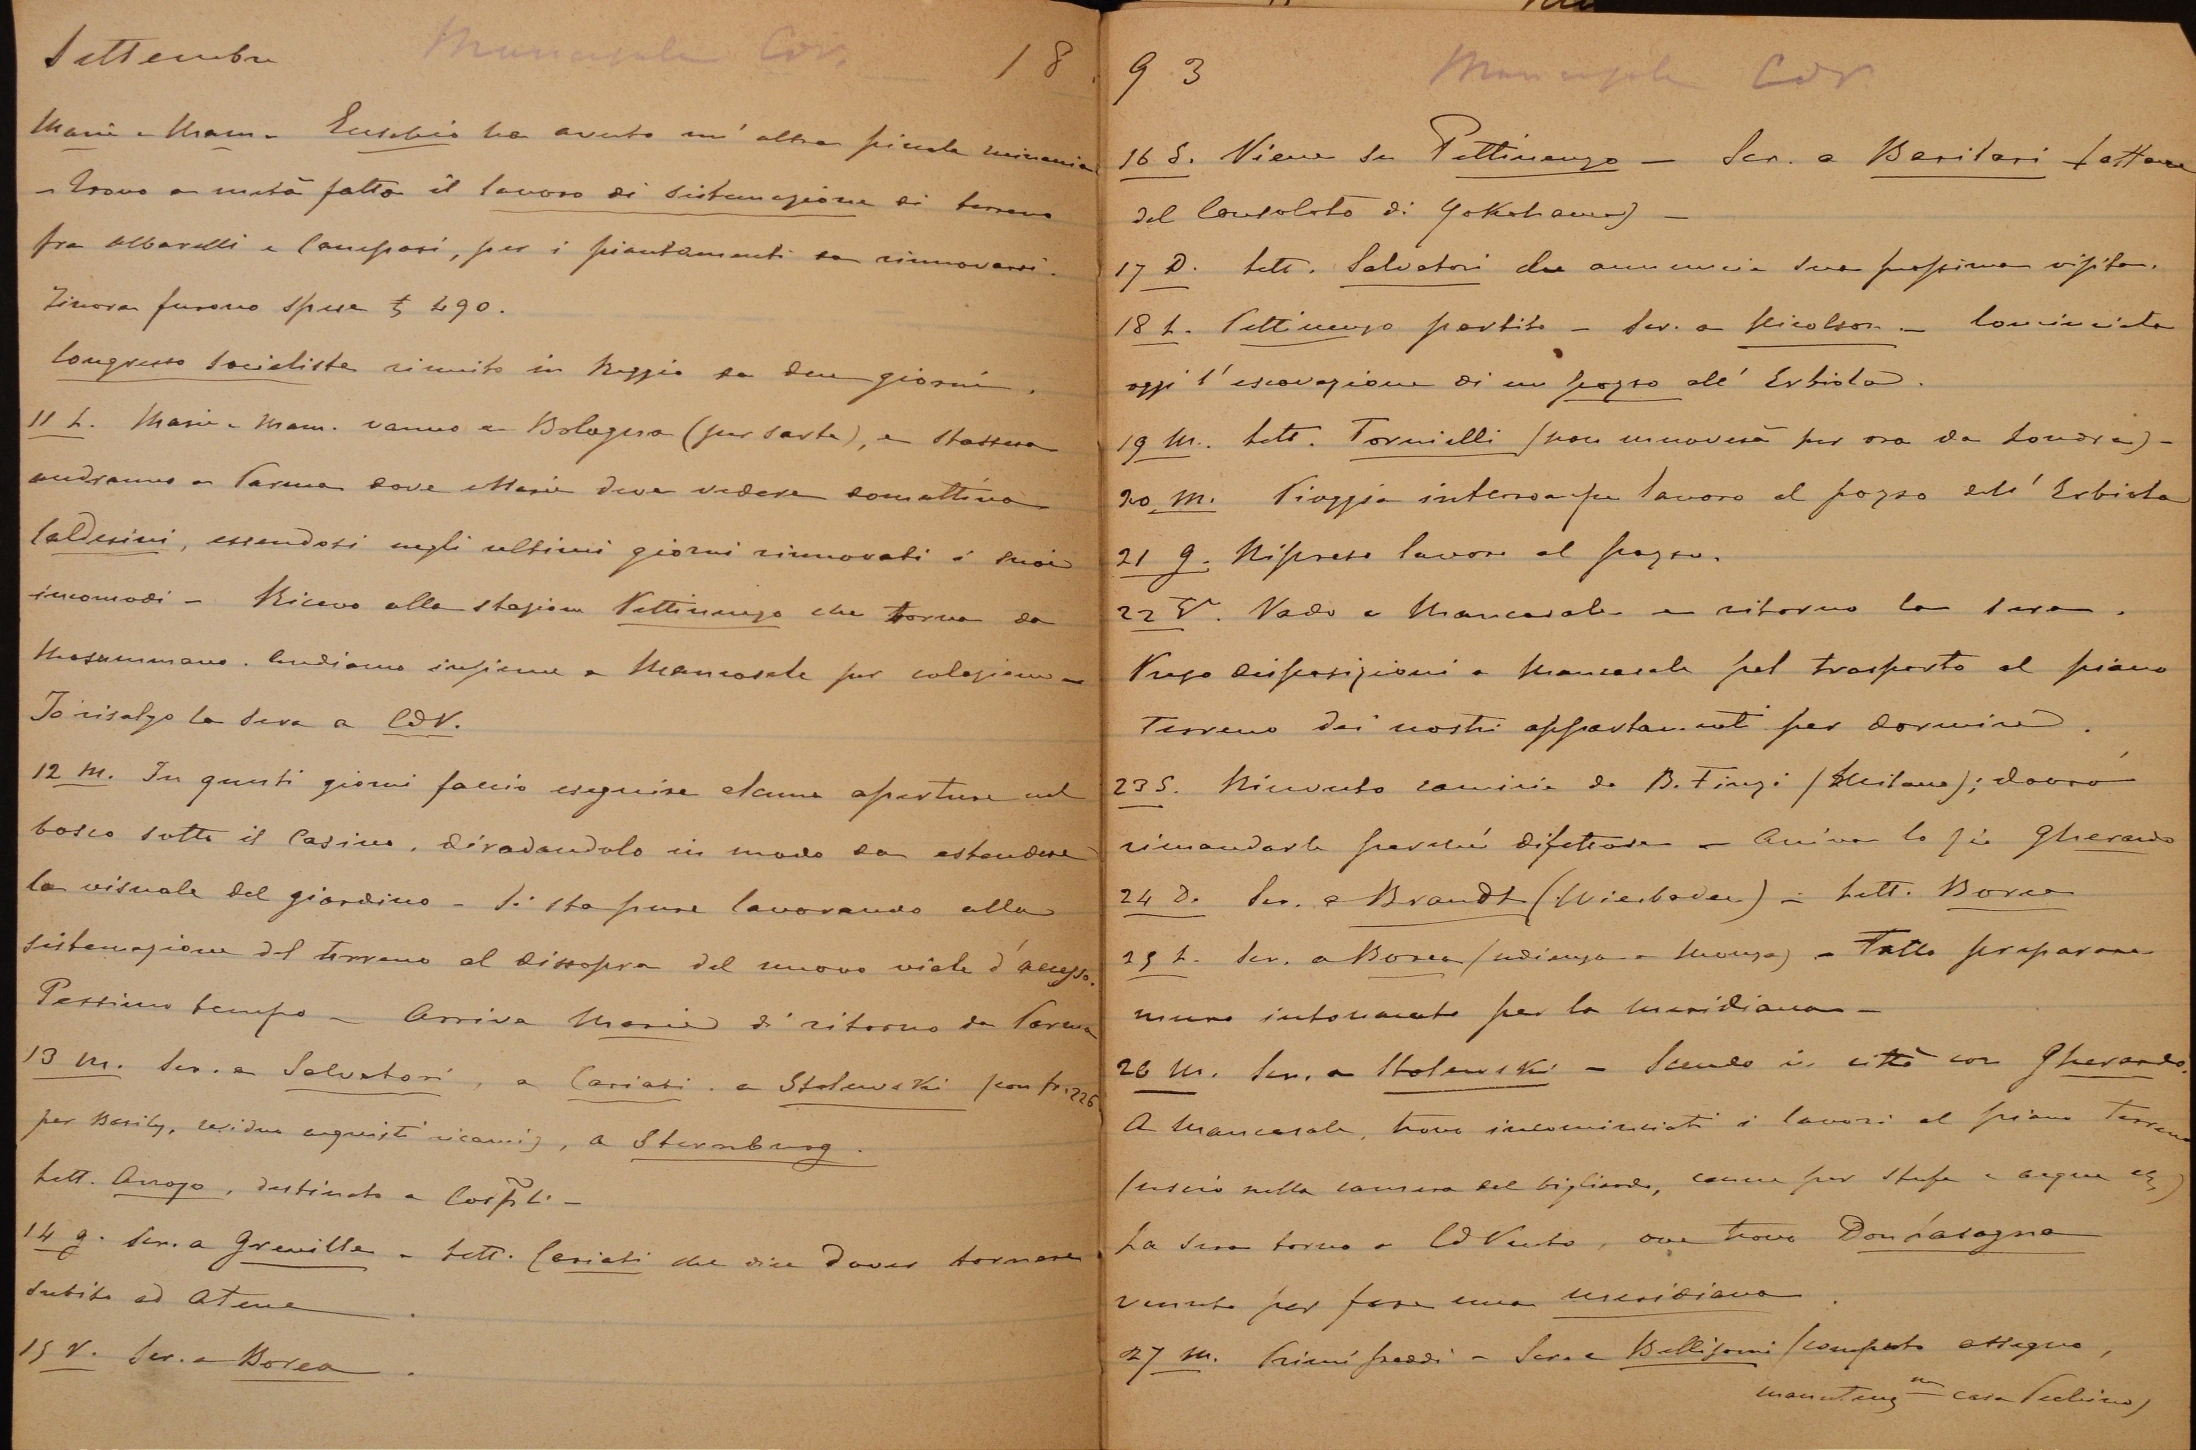 Settembre Mancasale CdV. 18
Marie e Mam. Eusebio ha avuto un' altra piccola
Trovo a metà fatto il lavoro di sistemazione di terreno
fra Albarelli e Camposi, per i piantamenti da rinnovarsi.
Finora furono spese £ 490.
Congresso Socialista riunito in Reggio da due giorni.
11 L. Marie e Mam. vanno a Bologna (per sarte), e stassera
andranno a Parma dove Marie deve vedere domattina
Caldesini, essendosi negli ultimi giorni rinnovati i suoi
incomodi - Ricevo alla stazione Pettinengo che torna da
Mosummano. Andiamo insieme a Mancasale per colazione -
Io risalgo la sera a CdV.
12 M. In questi giorni faccio eseguire alcune aperture nel
bosco sotto il Casino, diradandolo in modo da estendere
la visuale del giardino - Si sta pure lavorando alla
sistemazione del terreno al dissopra del nuovo viale d'accesso.
Pessimo tempo - Arriva Marie di ritorno da Parma
13 M. Scr. a Salvatori, a Cariati, a Stolewski con fr. 226
per Basily, residuo acquisti ricami), a Sternburg.
Lett. Arrojo, destinato a Costpli -
14 G. Scr. a Greville - Lett. Cariati che dice dover tornare
subito ad Atene.
15 V. Scr. a Borea.
93 Mancasale CdV
16 S. Viene su Pettinengo - Scr. a Barilari
del Consolato di Yokohama) -
17 D. Lett. Salvatori che annuncia sua prossima visita.
18 L. Pettinengo partito - Scr. a Nicolson - Cominciata
oggi l'escavazione di un pozzo all' Erbiola.
19 M. Lett. Tornielli (non muoverà per ora da Londra) -
20 M. Pioggia interrompe lavoro al pozzo dell' Erbiola
21 G. Ripreso lavoro al pozzo.
22 V. Vado a Mancasale e ritorno la sera.
Prego disposizioni a Mancasale pel trasporto al piano
terreno dei nostri appartamenti per dormire.
23 S. Ricevuto camicie da B. Finzi (Milano); dovrò
rimandarle perché difettose - Arriva lo zio Gherardo
24 D. Scr. a Brandt (Wiesbaden) - Lett. Borea
25 L. Scr. a Borea (udienza a Monza) - Fatto preparare
muro intonacato per la meridiana -
26 M. Scr. a Stolewski - Scendo in città con Gherardo.
A Mancasale, trovo incominciati i lavori al piano terreno
(uscio nella camera del bigliardo, canne per stufe e acqua
La sera torno a CdVento, ove trovo Don Lasagna
venuto per fare una meridiana.
27 M. Primi freddi - Scr. a Bellisomi assegno,
casa Pechino)